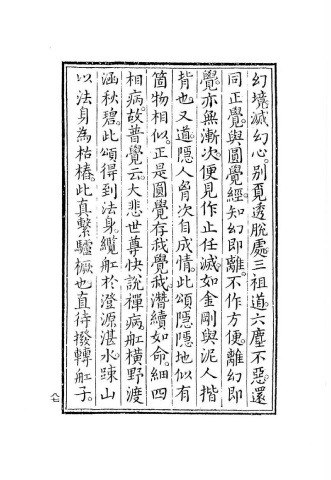 幻境滅幻心。别覓透脫處。三祖道。六塵不惡。還
同正覺。與圓覺經。知幻即離。不作方便。離幻即
覺。亦無漸次。便見作止任滅。如金剛與泥人揩
背也。又道。隱人胷次自成情。此頌隱隱地似有
箇物相似。正是圓覺存我覺我。潛續如命細四
相病。故普覺云。大悲世尊快說禪病。舡橫野渡
涵秋碧。此頌得到法身。纜舡於澄源湛水。踈山
以法身為枯樁。此真繫驢橛也。直待撥轉舡子。